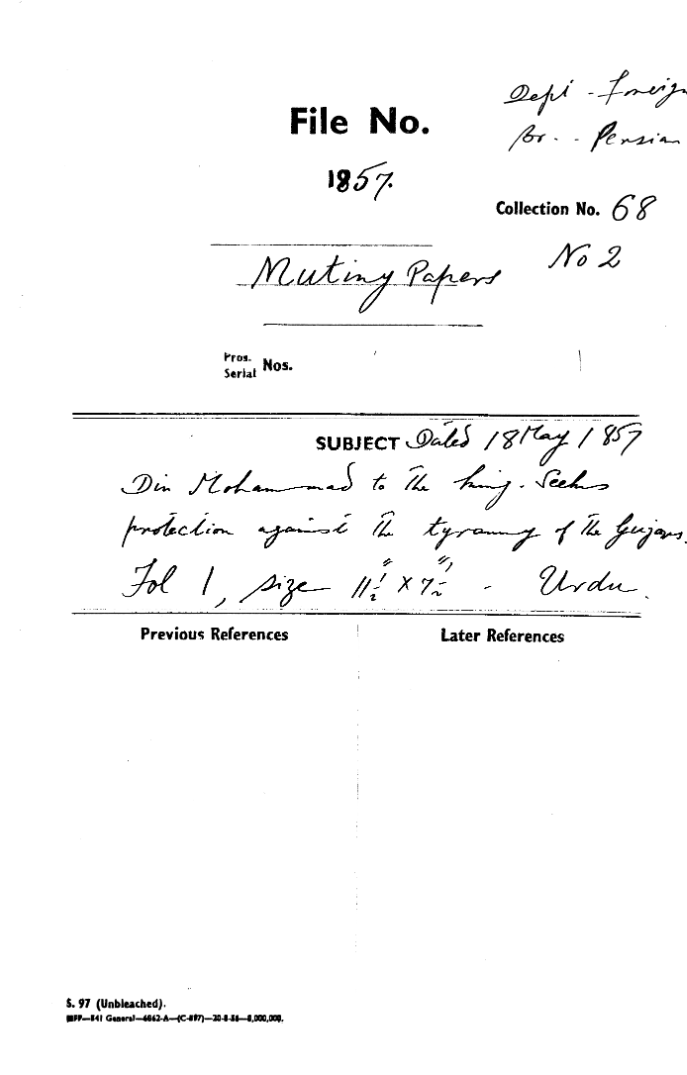 Dept - Foreign
Br. - Persian
File No.
1857.
Collection No. 68
No 2
Mutiny Papers
Pros.
Serial Nos.
SUBJECT Dated 18 May 1857
Din Mohammad to the king. Seeks
protection against the tyranny of the Gujars.
Fol 1, size 11½" × 7½" - Urdu.
Previous References
Later References
S. 97 (Unbleached).
841 General—6862-A—(C-897)—20-8-56—8,000,000.